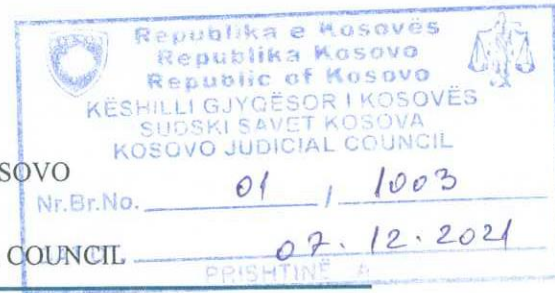 Republika e Kosovës
Republika Kosovo
Republic of Kosovo
KËSHILLI GJYQËSOR I KOSOVËS
SUDSKI SAVET KOSOVA
KOSOVO JUDICIAL COUNCIL
OSOVO
Nr.Br.No. 01 / 1003
COUNCIL 07.12.2021
PRISHTINË